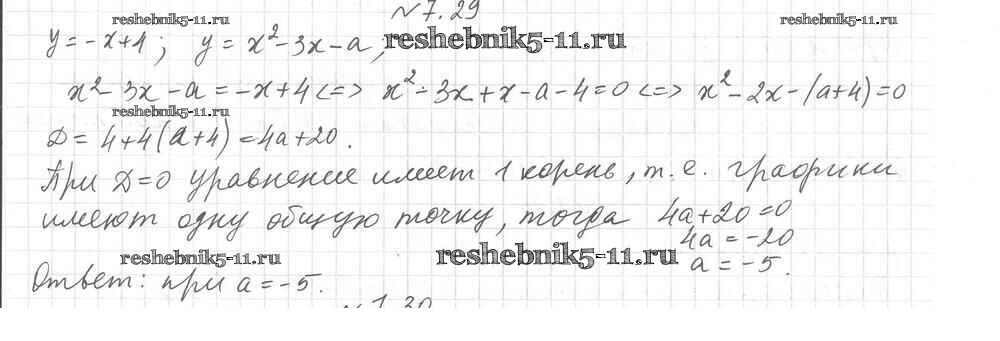 №7.29
reshebnik5-11.ru reshebnik5-11.ru
y = -x+4; y = x²-3x-a; reshebnik5-11.ru
x²-3x-a = -x+4 <=> x²-3x+x-a-4=0 <=> x²-2x-(a+4)=0
reshebnik5-11.ru
D = 4+4(a+4) = 4a+20.
При D=0 уравнение имеет 1 корень, т.е. графики
имеют одну общую точку, тогда 4a+20=0
4a = -20
reshebnik5-11.ru reshebnik5-11.ru
a = -5.
Ответ: при a = -5.